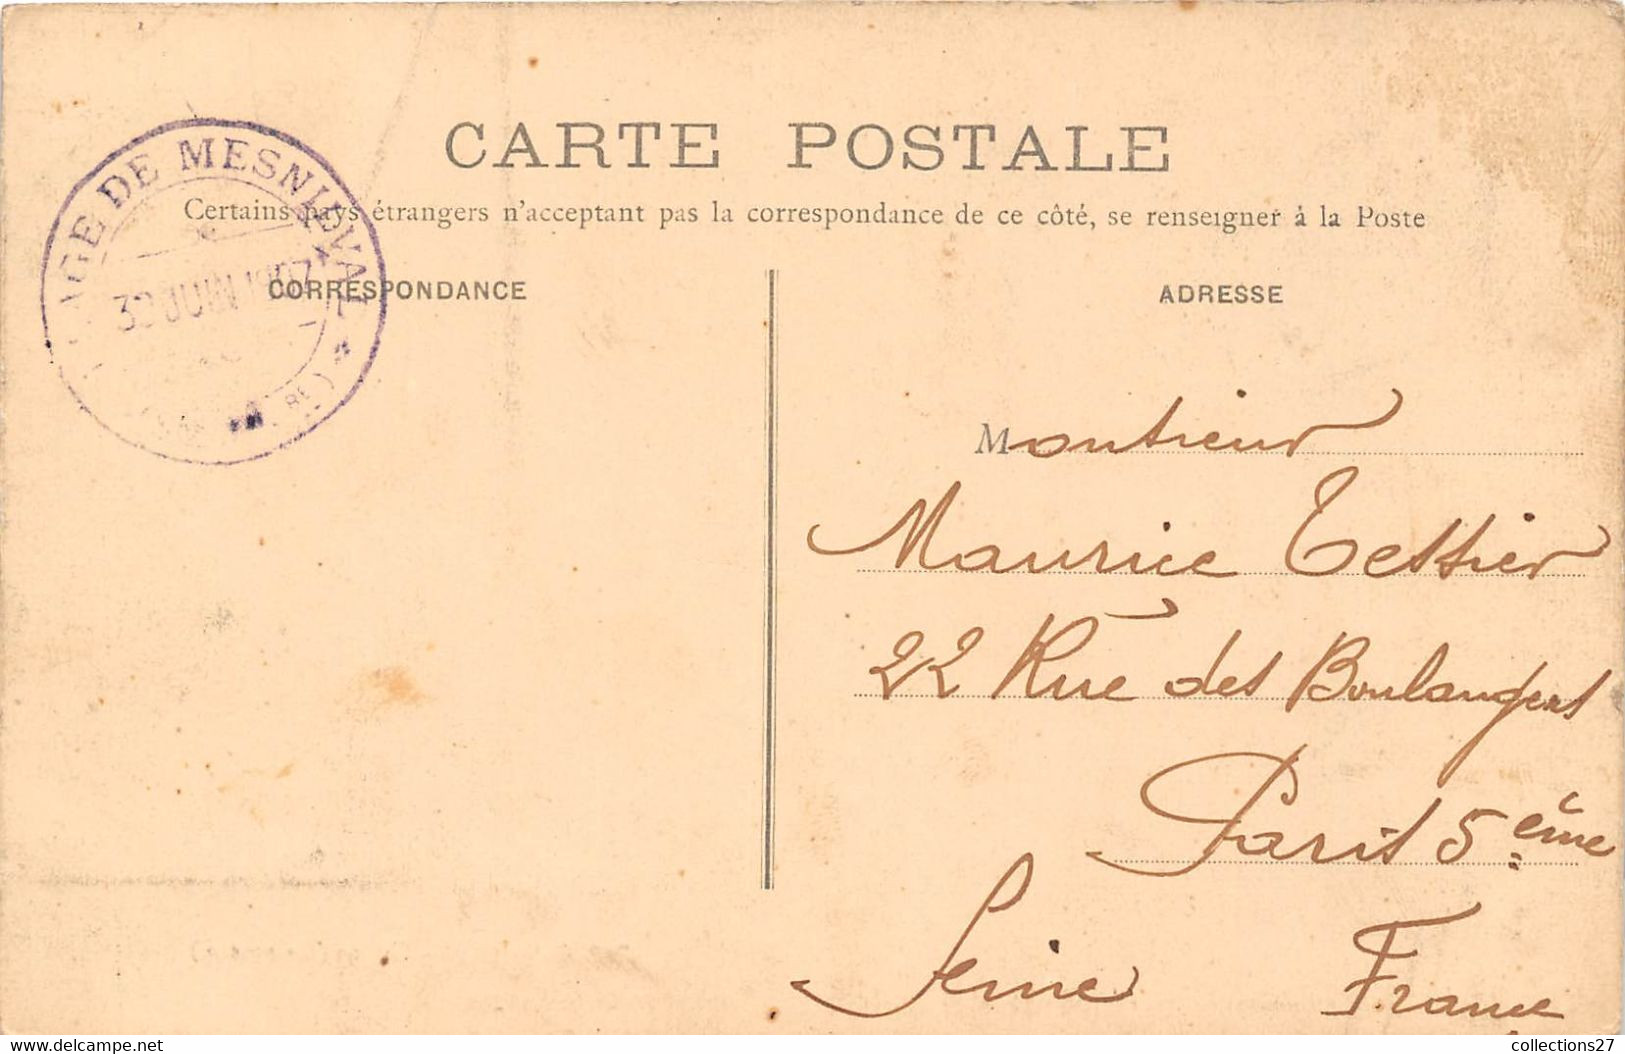 CARTE POSTALE
Certains pays étrangers n'acceptant pas la correspondance de ce côté, se renseigner à la Poste
DE MESNILVAL
30 JUIN 1907
CORRESPONDANCE
ADRESSE
Monsieur
Maurice Tessier
22 Rue des Boulangers
Paris 5ème
Seine France
www.delcampe.net
collections27